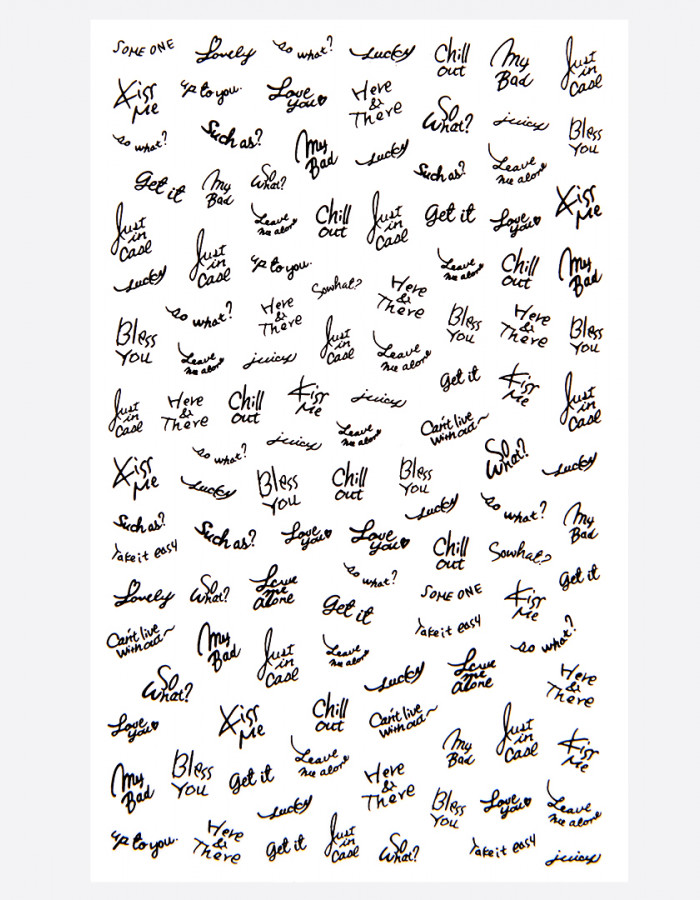 SOME ONE
Lovely
so what?
Lucky
Chill
out
My
Bad
Just
in
Case
Kiss
Me
up to you.
Love
you
Here
&
There
So
What?
juicy
Bless
You
so what?
Such as?
My
Bad
Lucky
Such as?
Leave
me alone
Get it
My
Bad
So
What?
Kiss
Me
Just
in
Case
Leave
me alone
Chill
out
Just
in
Case
Get it
Love
you
Just
in
Case
up to you.
Leave
me alone
Chill
out
My
Bad
Lucky
So what?
Here
&
There
so what?
Here
&
There
Bless
You
Here
&
There
Bless
You
Bless
You
Leave
me alone
juicy
Just
in
Case
Leave
me alone
Get it
Kiss
Me
Just
in
Case
Just
in
Case
Here
&
There
Chill
out
Kiss
Me
juicy
Leave
me alone
Can't live
without~
so what?
juicy
So
What?
Lucky
Kiss
Me
Lucky
Bless
You
Chill
out
Bless
You
Lucky
so what?
My
Bad
Such as?
Such as?
Love
you
Love
you
Chill
out
So what?
Take it easy
Get it
Lovely
So
What?
Leave
me
alone
so what?
Get it
SOME ONE
Kiss
Me
Take it easy
Can't live
without~
My
Bad
Just
in
Case
Leave
me alone
Lucky
Leave
me
alone
so what?
So
What?
Here
&
There
Love
you
Kiss
Me
Chill
out
Can't live
without~
My
Bad
Just
in
Case
Kiss
Me
My
Bad
Bless
You
Get it
Leave
me alone
Here
&
There
Lucky
Bless
You
Love
you
Leave
me alone
up to you.
Here
&
There
Get it
Just
in
Case
So
What?
Take it easy
juicy